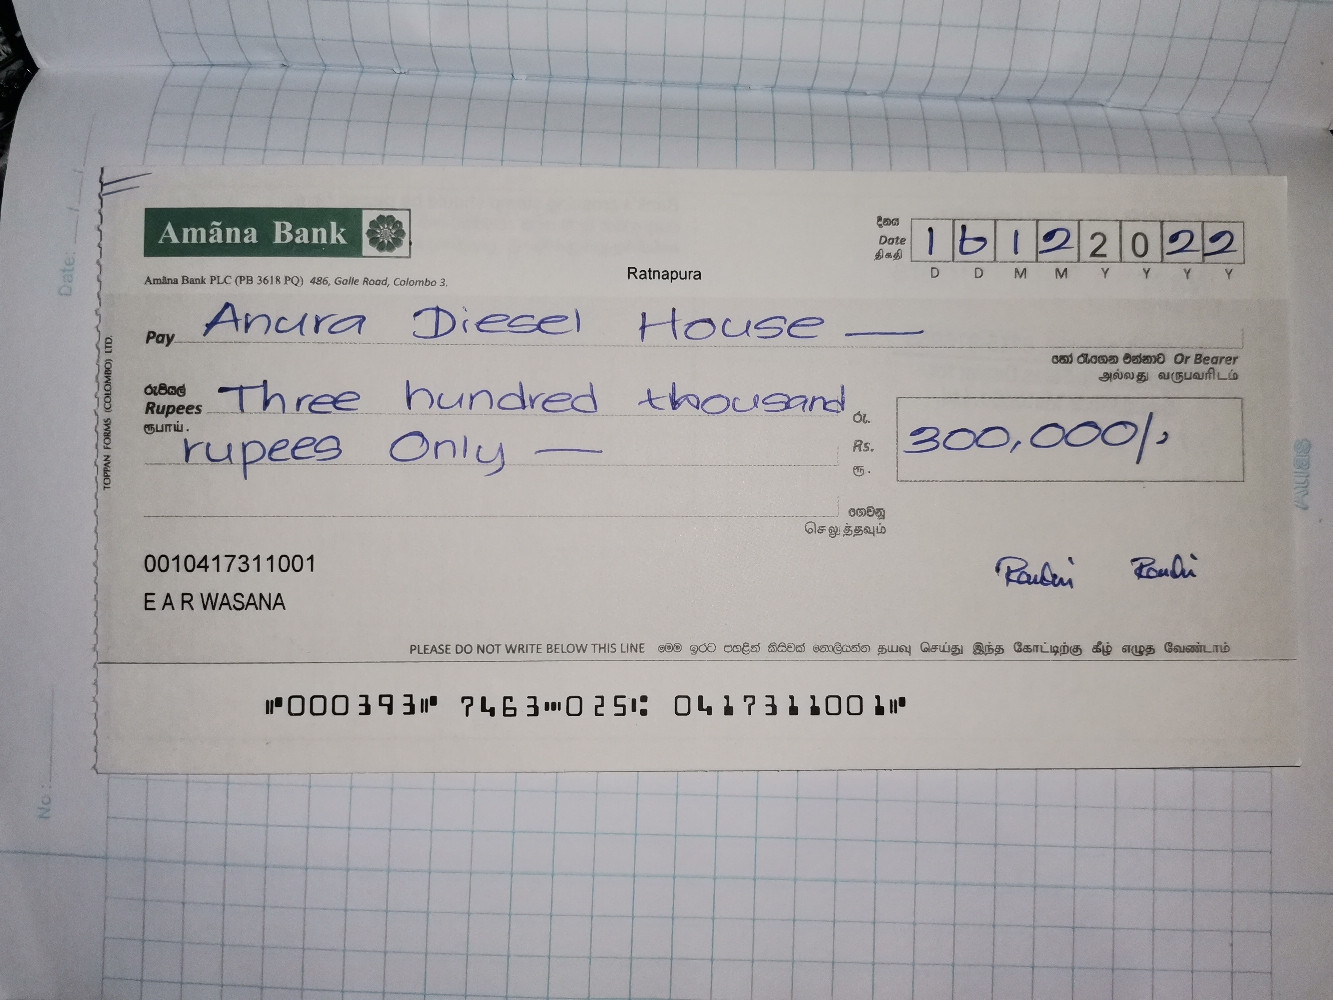 Amãna Bank
Amãna Bank PLC (PB 3618 PQ) 486, Galle Road, Colombo 3.
Ratnapura
දිනය
Date
திகதி
1 6 1 2 2 0 2 2
D D M M Y Y Y Y
Pay Anura Diesel House —
හෝ රැගෙන එන්නාට Or Bearer
அல்லது வருபவரிடம்
රුපියල්
Rupees Three hundred thousand
ரூபாய்.
rupees Only —
රු.
Rs. 300,000/-
ரூ.
ගෙවනු
செலுத்தவும்
0010417311001
E A R WASANA
PLEASE DO NOT WRITE BELOW THIS LINE මෙම ඉරට පහළින් කිසිවක් නොලියන්න தயவு செய்து இந்த கோட்டிற்கு கீழ் எழுத வேண்டாம்
⑈000393⑈ 7463⑉025⑆ 0417311001⑈
TOPPAN FORMS (COLOMBO) LTD.
Date:
No: